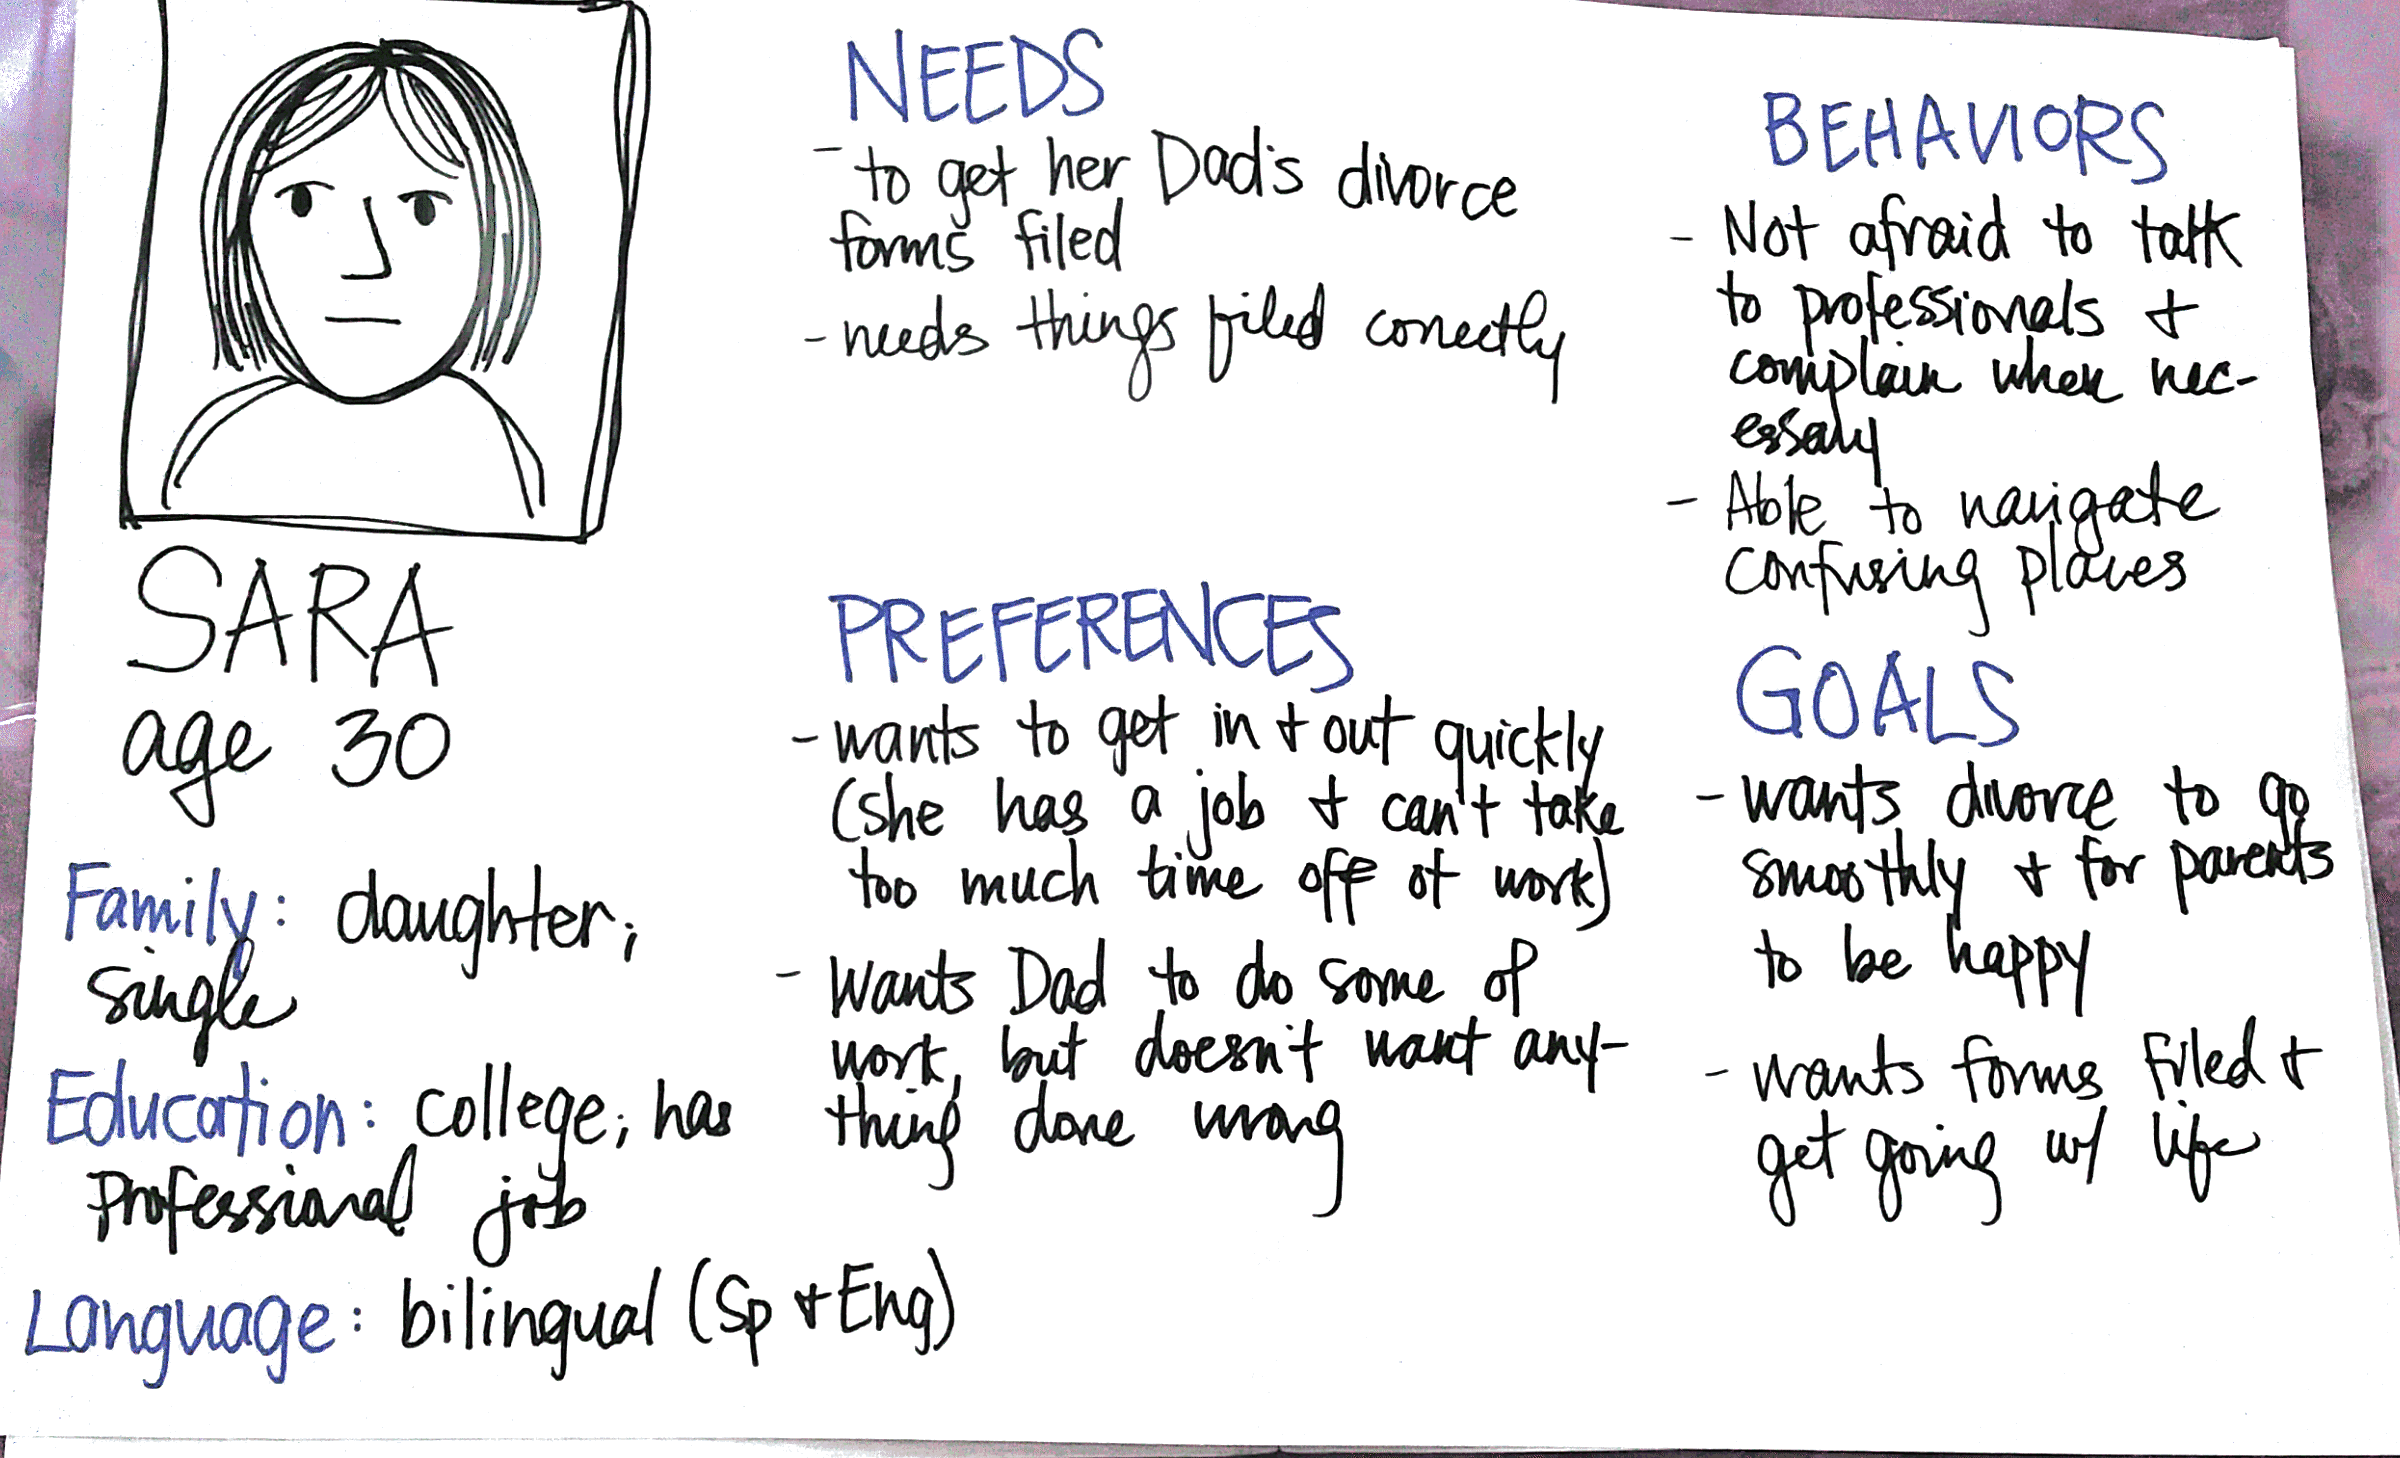 SARA
age 30
Family: daughter;
single
Education: college; has
Professional job
Language: bilingual (Sp + Eng)
NEEDS
- to get her Dad's divorce
forms filed
- needs things filed correctly
PREFERENCES
- wants to get in + out quickly
(she has a job + can't take
too much time off of work)
- Wants Dad to do some of
work, but doesn't want any-
thing done wrong
BEHAVIORS
- Not afraid to talk
to professionals +
complain when nec-
essary
- Able to navigate
confusing places
GOALS
- wants divorce to go
smoothly + for parents
to be happy
- wants forms filed +
get going w/ life